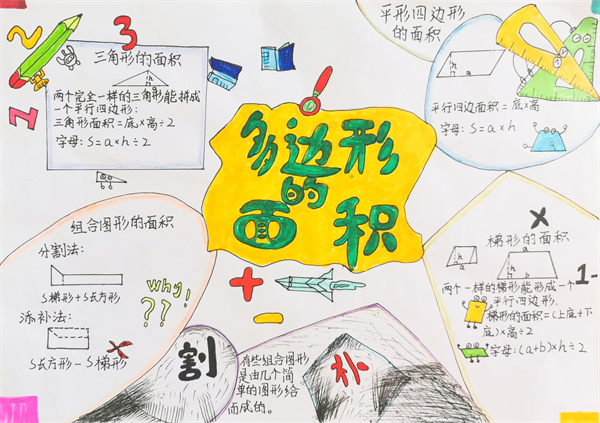 多边形
的
面积
2
3
1
三角形的面积
h
a
两个完全一样的三角形能拼成
一个平行四边形:
三角形面积=底×高÷2
字母:S=a×h÷2
平形四边形
的面积
h
a
平行四边面积=底×高
字母:S=a×h
组合图形的面积
分割法:
S梯形+S长方形
添补法:
S长方形-S梯形
why!
??
+
-
割
有些组合图形
是由几个简
单的图形给
而成的。
补
x
梯形的面积
b
h
a
h
a
1-
两个一样的梯形能形成一个
平行四边形.
梯形的面积=(上底+下
底)×高÷2
字母:(a+b)×h÷2